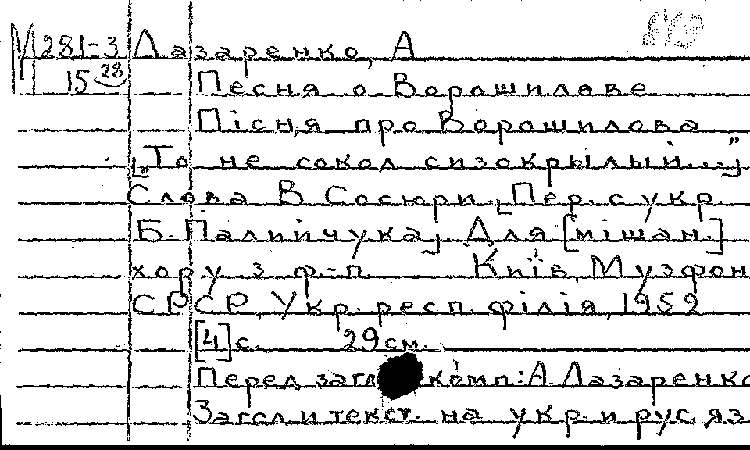 М281-3 Лазаренко, А
15 28 Песня о Ворошилове
Пісня про Ворошилова
„То не сокол сизокрылый..."
Слова В Сосюри [Пер. с укр.
Б. Палийчука] Для [мішан.]
хору з ф-п. Київ, Музфонд
СРСР, Укр. респ. філія, 1952
[4] с. 29 см.
Перед загл комп: А Лазаренко
Загл и текст. на укр. и рус яз